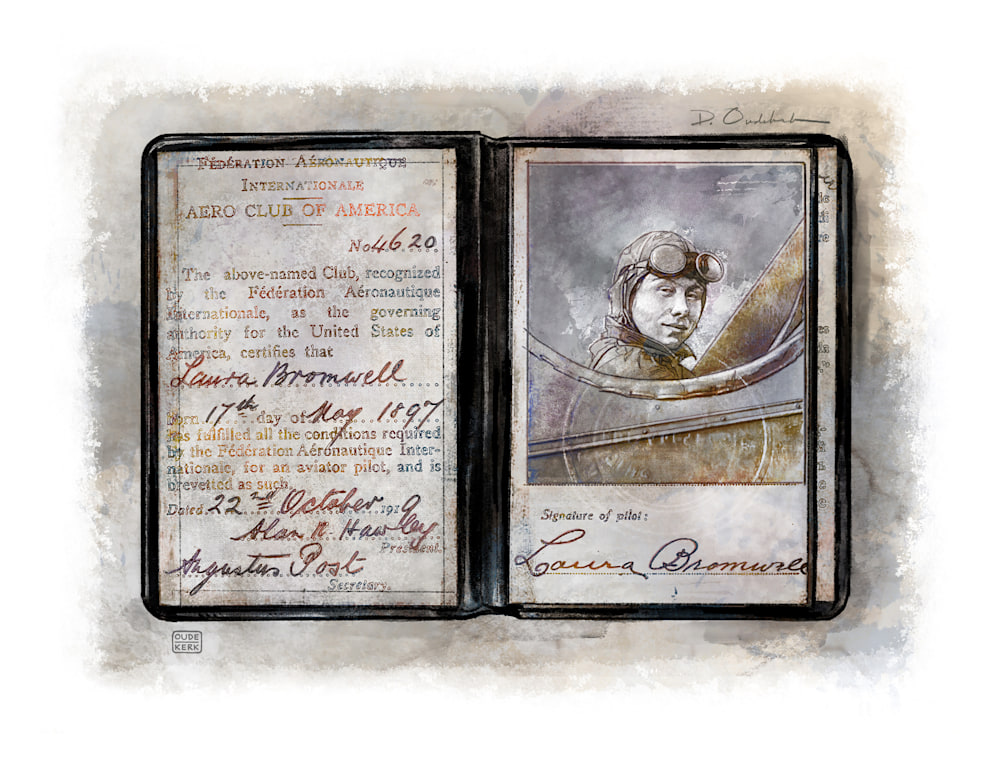 Fédération Aéronautique
Internationale
AERO CLUB OF AMERICA
No 4620
The above-named Club, recognized
by the Fédération Aéronautique
Internationale, as the governing
authority for the United States of
America, certifies that
Laura Bromwell
born 17th day of May 1897
has fulfilled all the conditions required
by the Fédération Aéronautique Inter-
nationale, for an aviator pilot, and is
brevetted as such.
Dated 22nd October 1919
Alan R. Hawley
President.
Augustus Post
Secretary.
OUDE
KERK
D. Oudekerk
Signature of pilot:
Laura Bromwell